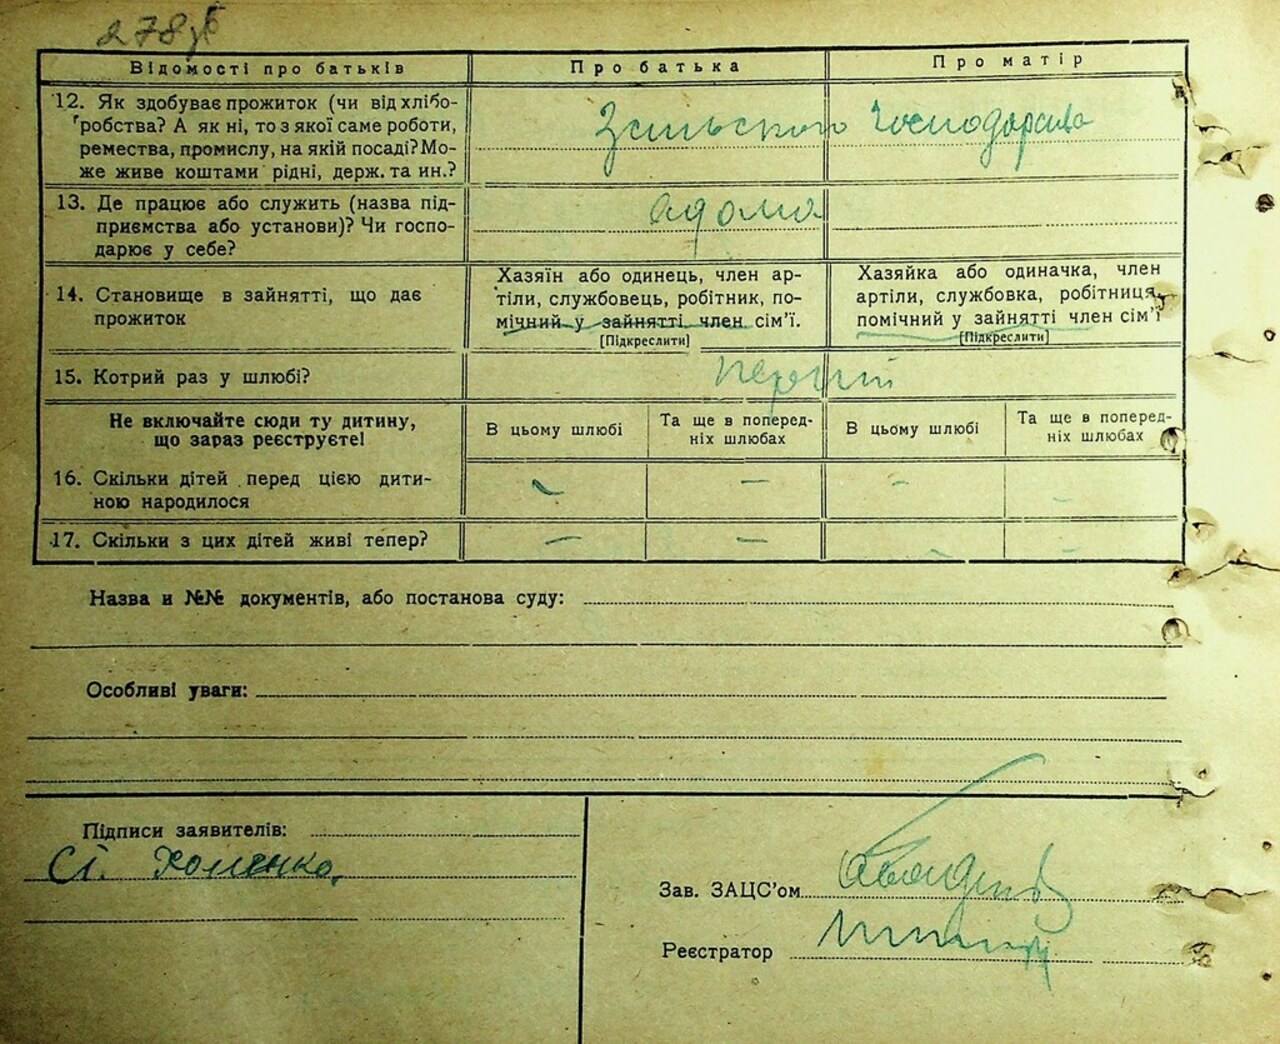 278зб
Відомості про батьків Про батька Про матір
12. Як здобуває прожиток (чи від хлібо-
робства? А як ні, то з якої саме роботи,
ремества, промислу, на якій посаді? Мо-
же живе коштами рідні, держ. та ин.?
Сильского Господарства
13. Де працює або служить (назва під-
приємства або установи)? Чи госпо-
дарює у себе?
дома
14. Становище в зайнятті, що дає
прожиток
Хазяїн або одинець, член ар-
тіли, службовець, робітник, по-
мічний у зайнятті член сім'ї.
[Підкреслити]
Хазяйка або одиначка, член
артіли, службовка, робітниця,
помічний у зайнятті член сім'ї
[Підкреслити]
15. Котрий раз у шлюбі?
перший
Не включайте сюди ту дитину,
що зараз реєструєте!
В цьому шлюбі
Та ще в поперед-
ніх шлюбах
В цьому шлюбі
Та ще в поперед-
ніх шлюбах
16. Скільки дітей перед цією дити-
ною народилося
— — — —
17. Скільки з цих дітей живі тепер?
— — — —
Назва и №№ документів, або постанова суду:
Особливі уваги:
Підписи заявителів:
Хоменко
Зав. ЗАЦС'ом
Реєстратор